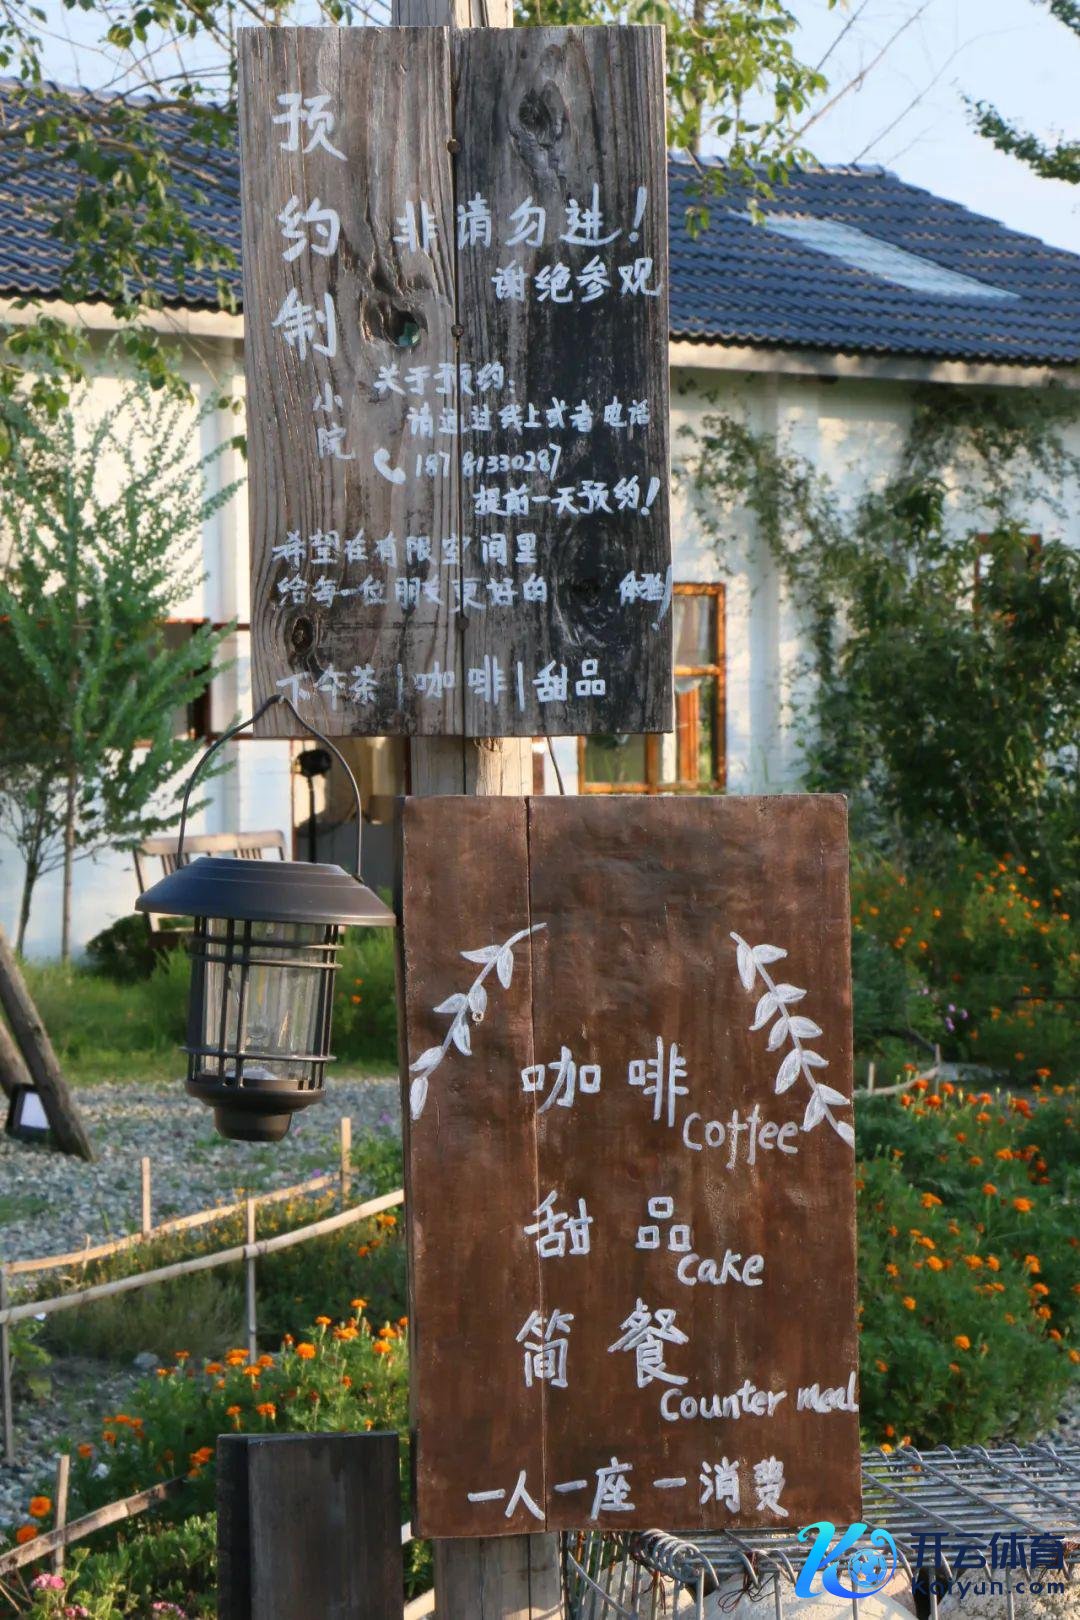 预约制
小院
非请勿进！
谢绝参观
关于预约：
请通过线上或者电话
18781330287
提前一天预约！
希望在有限空间里
给每一位朋友更好的 体验！
下午茶｜咖啡｜甜品
咖啡
Coffee
甜品
Cake
简餐
Counter meal
一人一座一消费
开云体育
Kaiyun.com